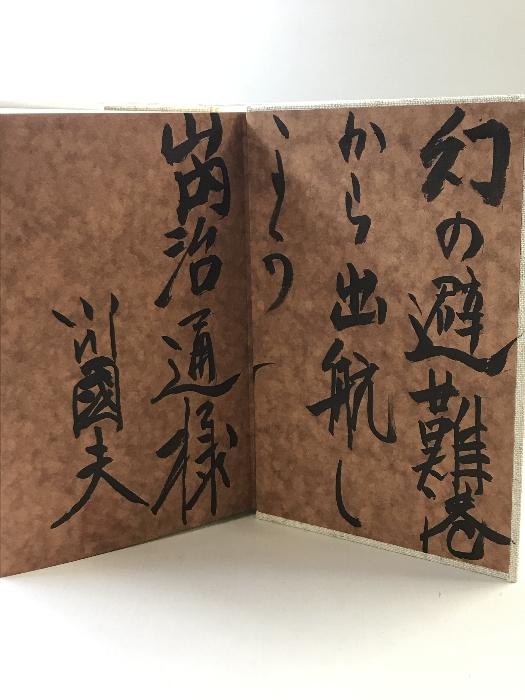 幻の避難港
から出航し
山内治通様
小川國夫